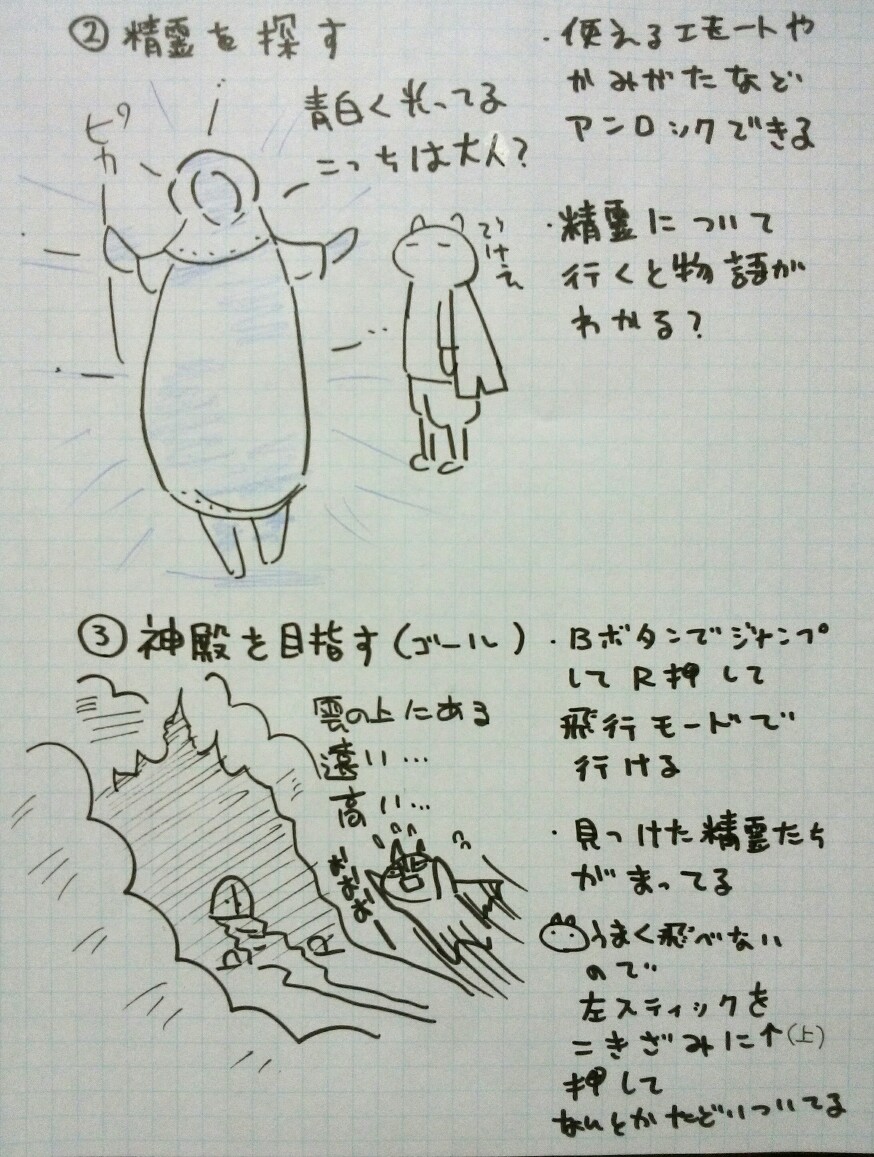 ② 精霊を探す
ピカ
青白く光ってる
こっちは大人?
・使えるエモートや
かみがたなど
アンロックできる
・精霊について
行くと物語が
わかる?
③ 神殿を目指す(ゴール)
雲の上にある
遠い…
高い…
おおおお
・Bボタンでジャンプ
してR押して
飛行モードで
行ける
・見つけた精霊たち
がまってる
うまく飛べない
ので
左スティックを
こきざみに↑(上)
押して
なんとかたどりついてる